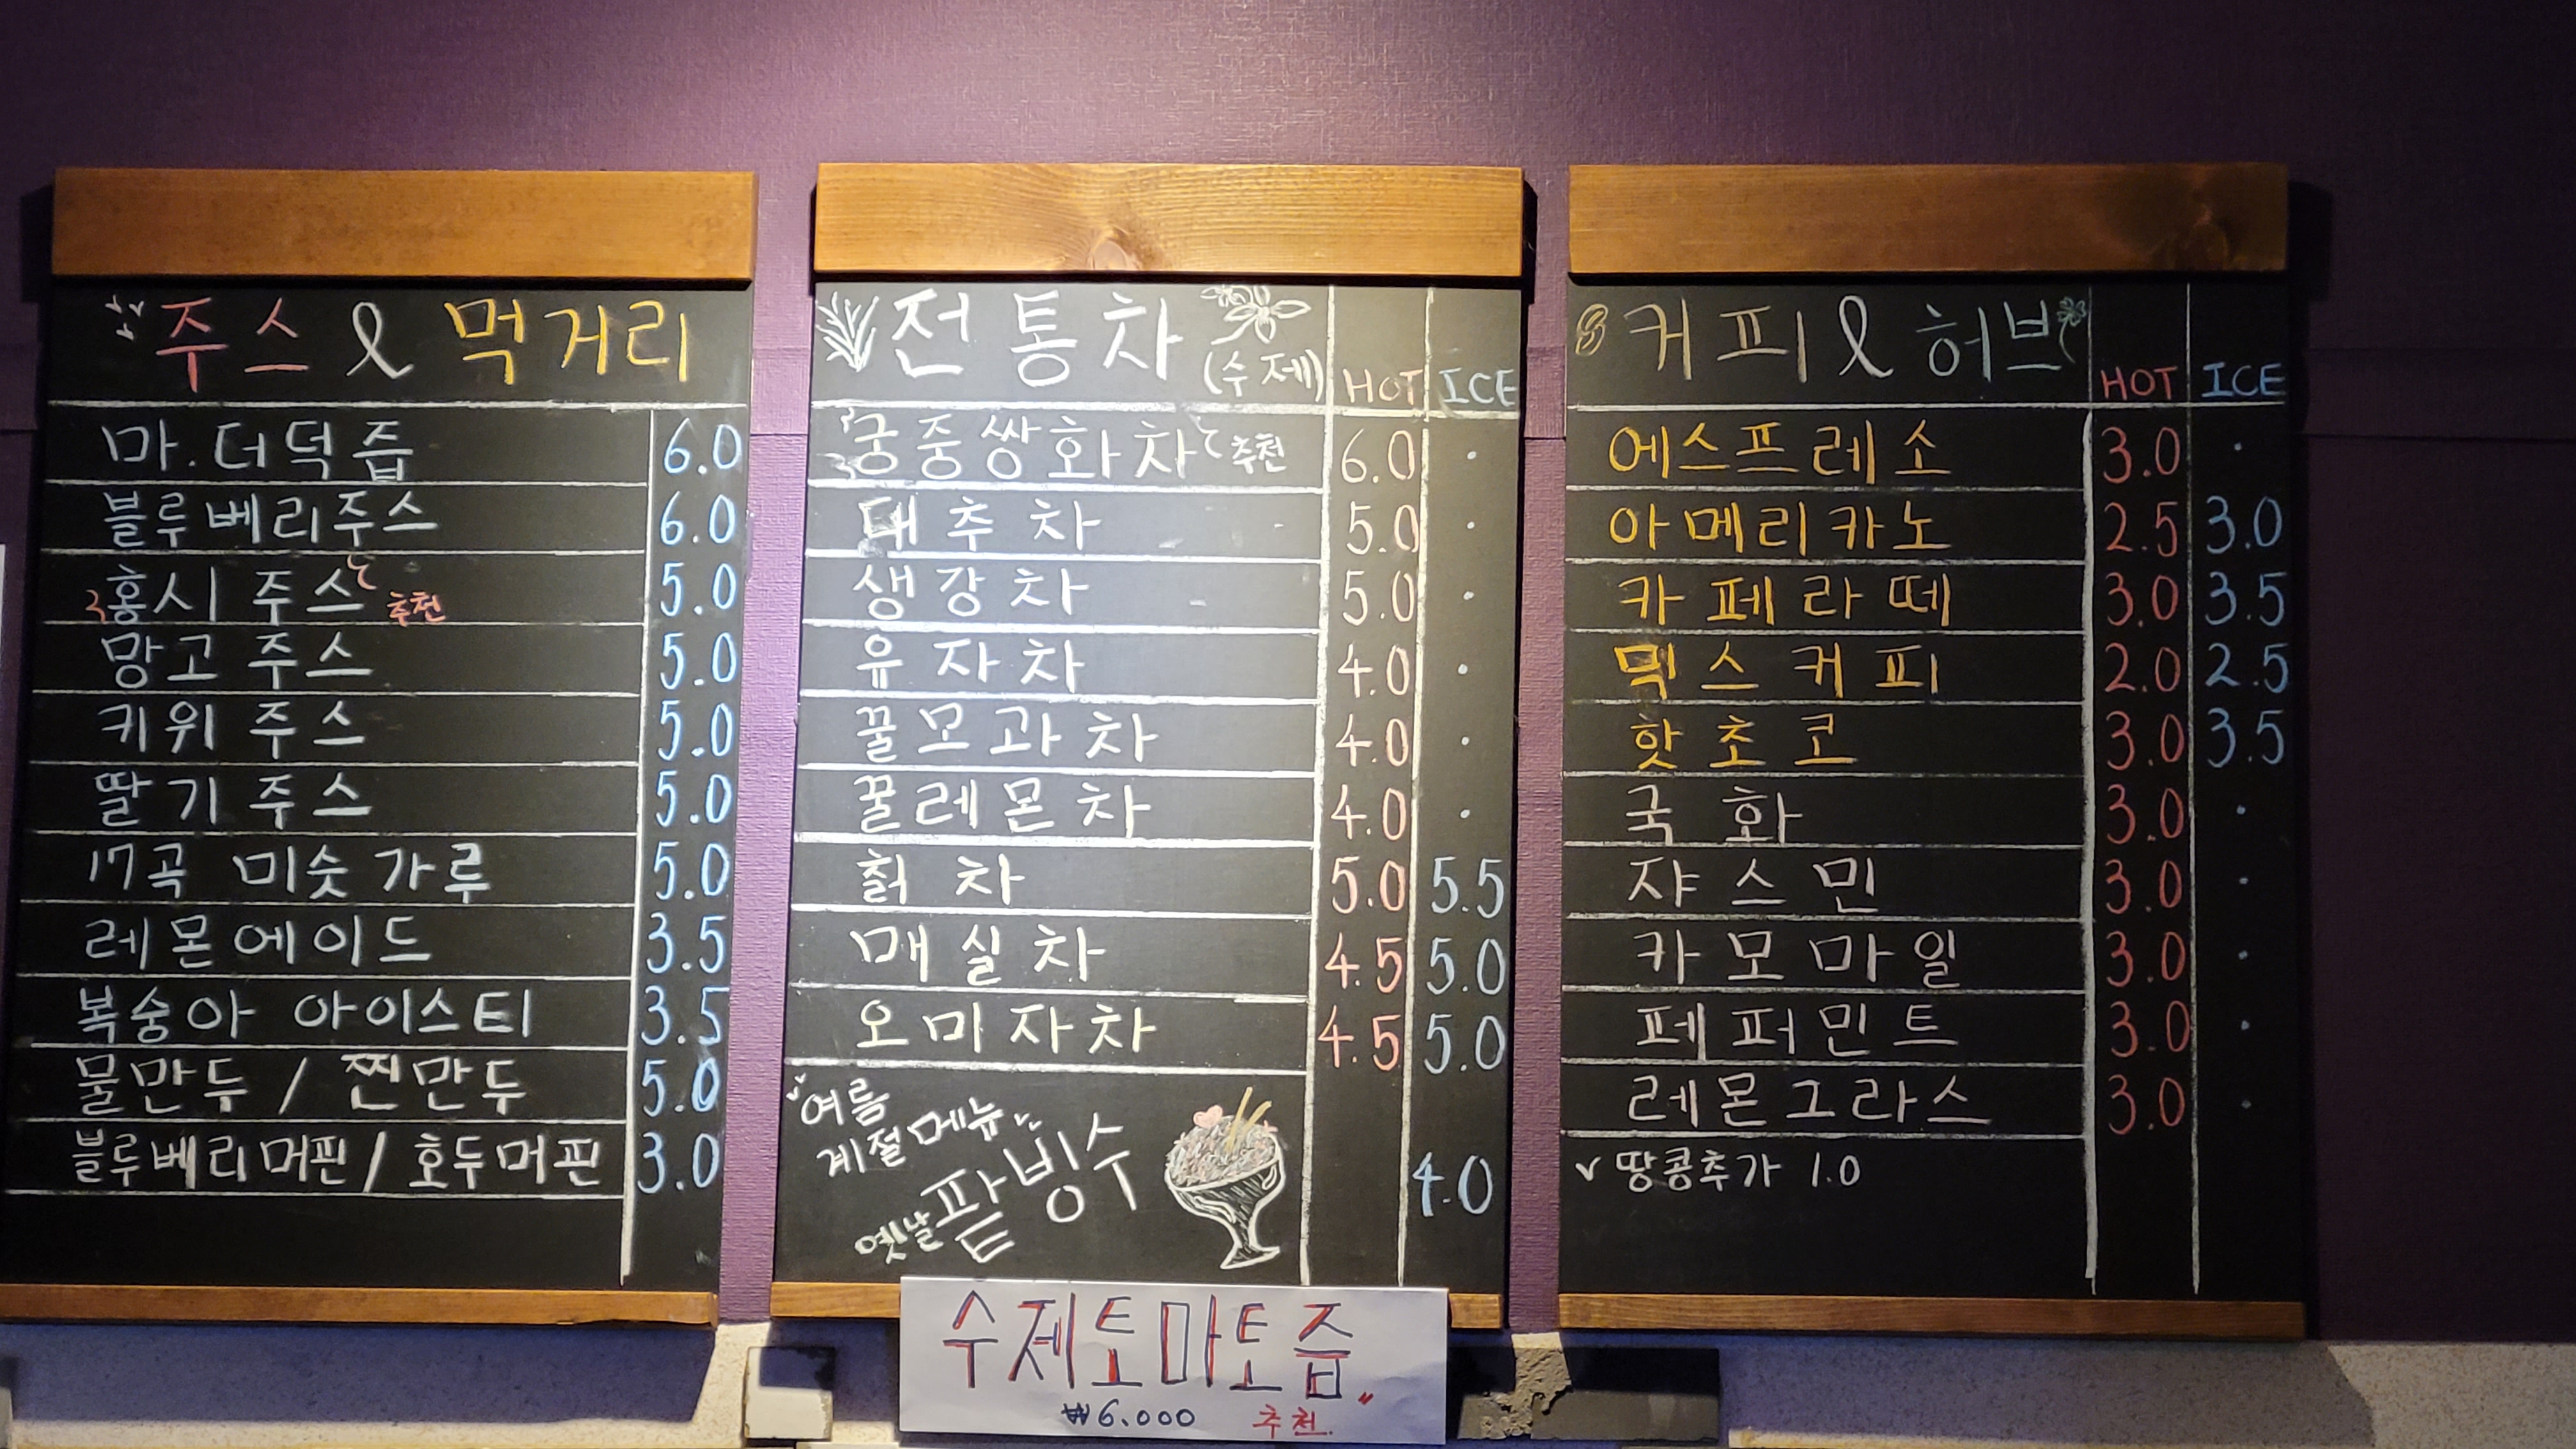 주스 & 먹거리
마.더덕즙 6.0
블루베리주스 6.0
홍시 주스 추천 5.0
망고 주스 5.0
키위 주스 5.0
딸기 주스 5.0
17곡 미숫가루 5.0
레몬에이드 3.5
복숭아 아이스티 3.5
물만두 / 찐만두 5.0
블루베리머핀 / 호두머핀 3.0
전통차 (수제) HOT ICE
궁중쌍화차 추천 6.0 ·
대추차 5.0 ·
생강차 5.0 ·
유자차 4.0 ·
꿀모과차 4.0 ·
꿀레몬차 4.0 ·
칡차 5.0 5.5
매실차 4.5 5.0
오미자차 4.5 5.0
여름
계절메뉴
옛날 팥빙수 4.0
커피 & 허브 HOT ICE
에스프레소 3.0 ·
아메리카노 2.5 3.0
카페라떼 3.0 3.5
믹스커피 2.0 2.5
핫초코 3.0 3.5
국화 3.0 ·
쟈스민 3.0 ·
카모마일 3.0 ·
페퍼민트 3.0 ·
레몬그라스 3.0 ·
✓ 땅콩추가 1.0
수제토마토즙〃
₩6.000 추천.